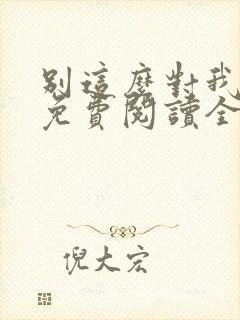 別這麼對我
免費閱讀全
倪大宏